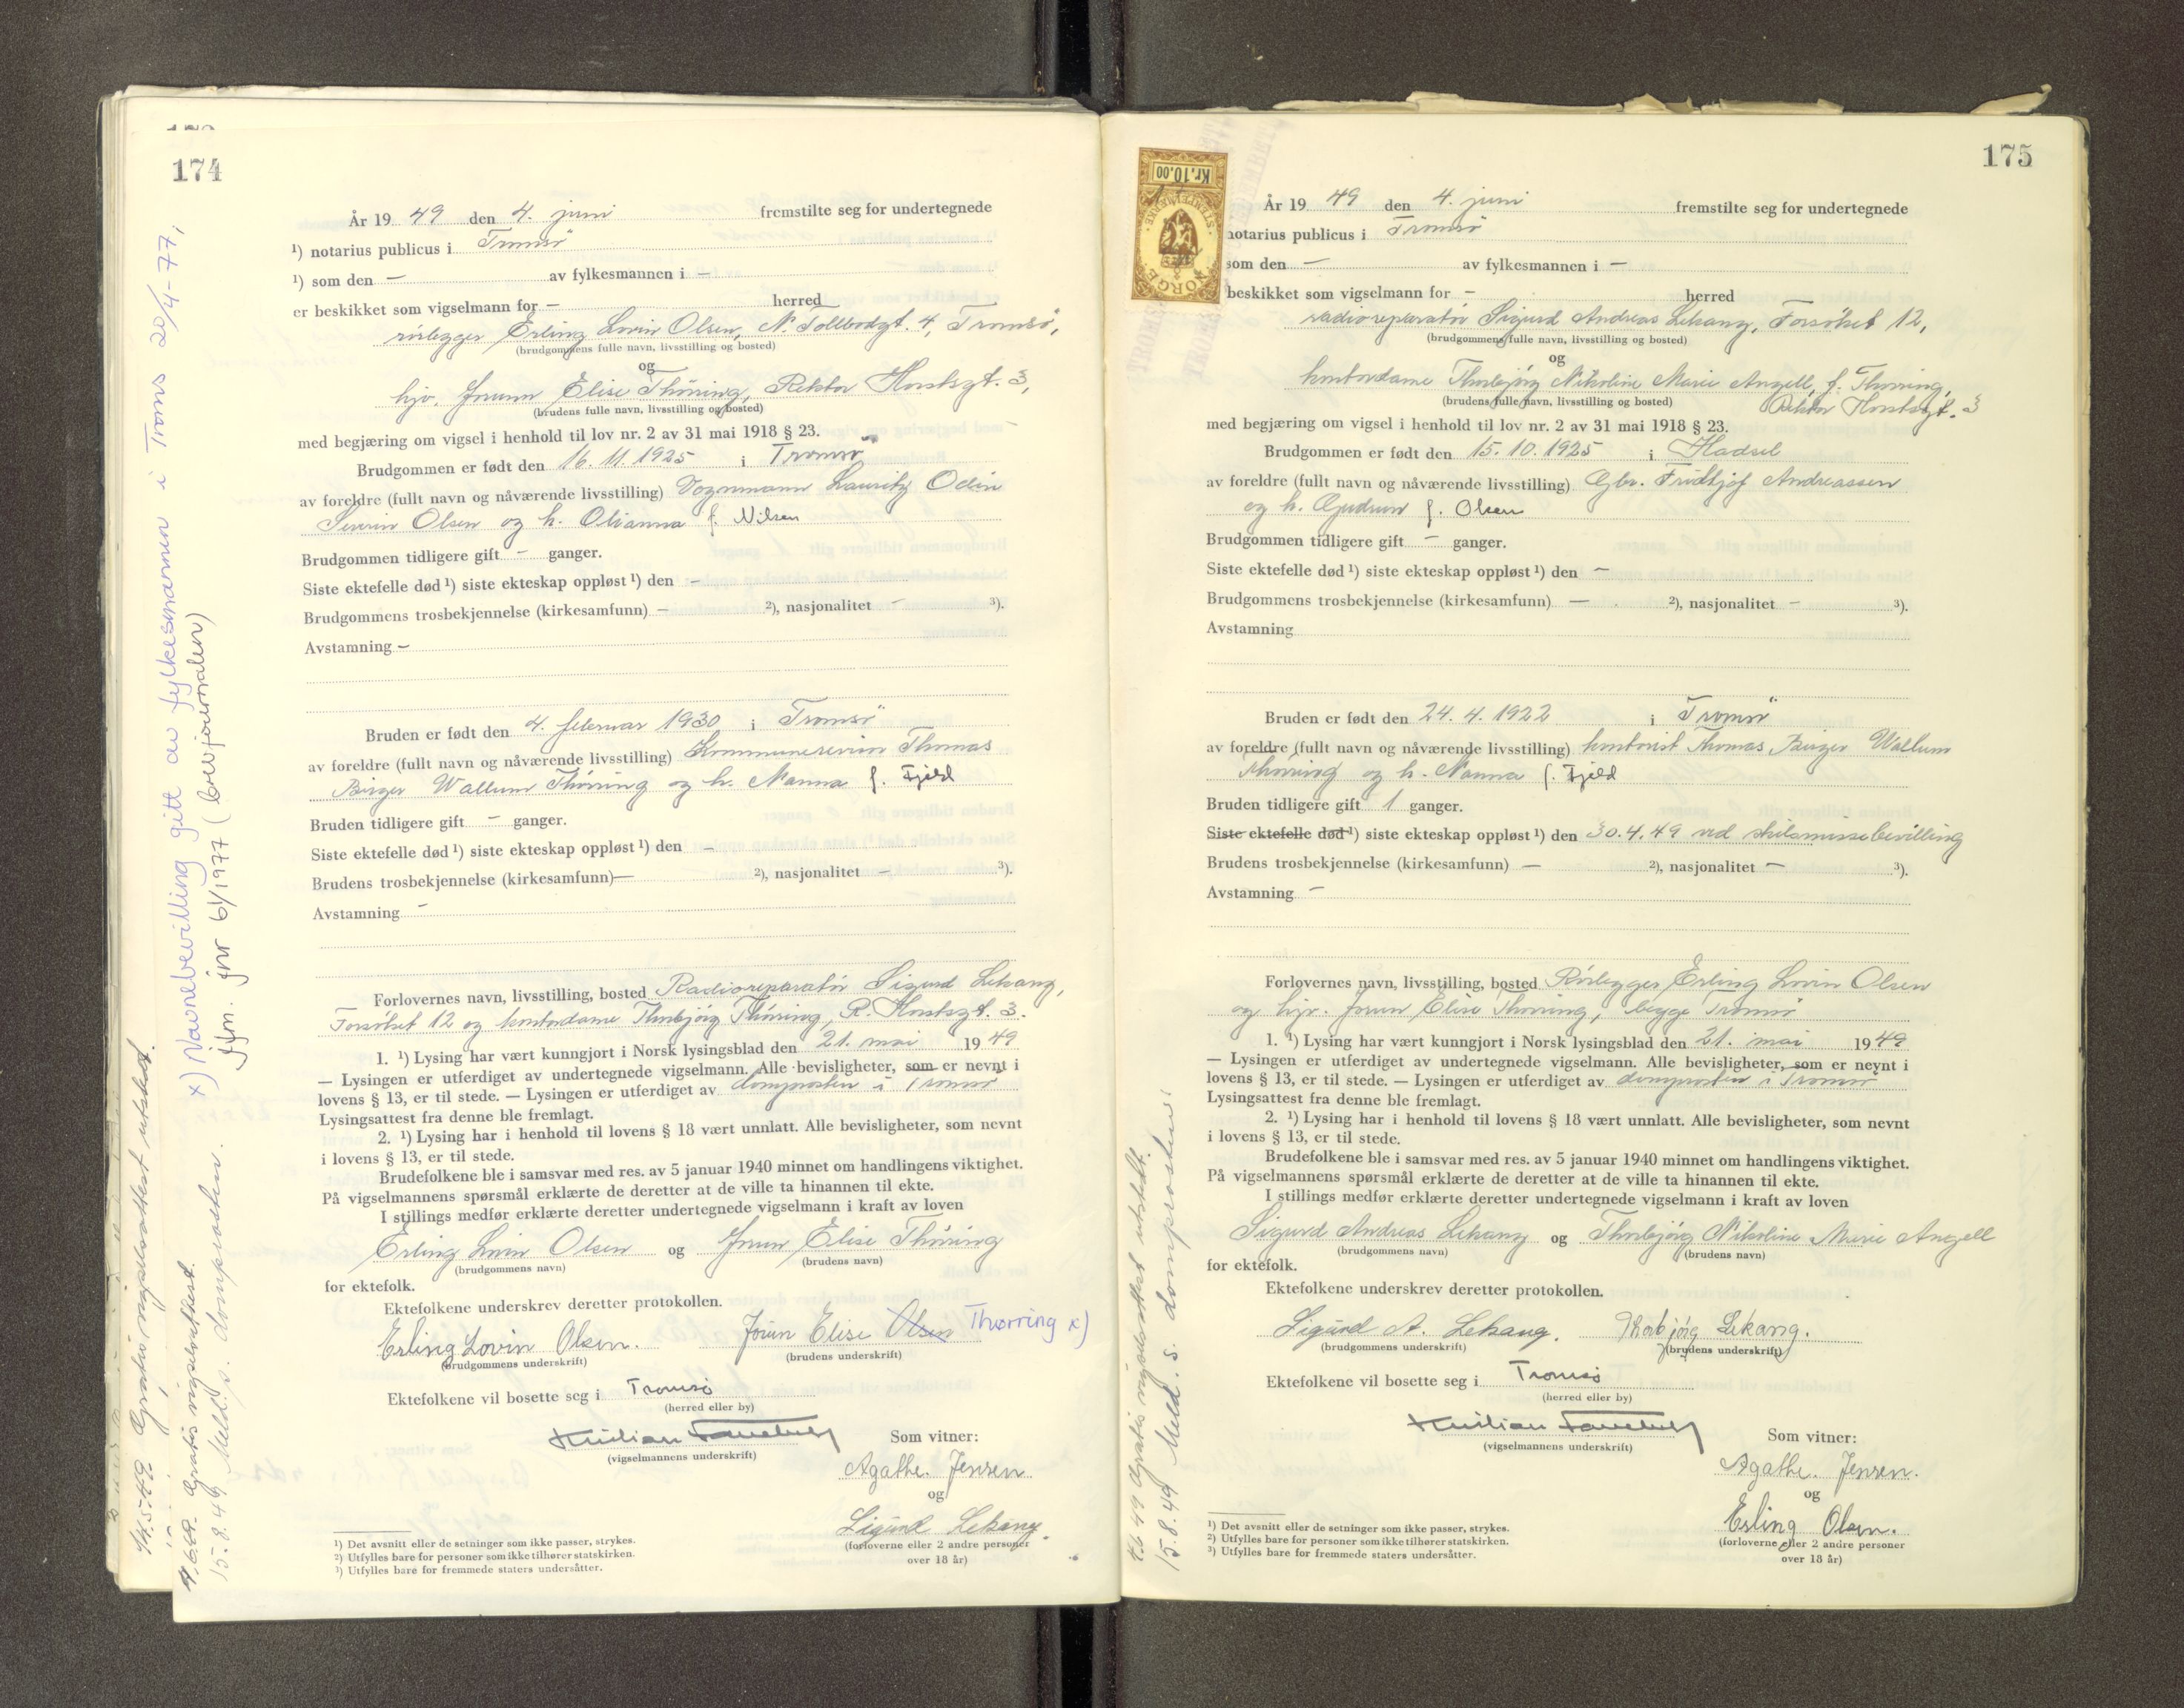 174
År 19 49 den 4. juni fremstilte seg for undertegnede
¹) notarius publicus i Tromsö
¹) som den — av fylkesmannen i —
er beskikket som vigselmann for — herred
rörlegger Erling Lovin Olsen, N. Tollbodgt. 4, Tromsö,
(brudgommens fulle navn, livsstilling og bosted)
og
hjv. Jorunn Elise Thöring, Rektor Horstsgt. 3,
(brudens fulle navn, livsstilling og bosted)
med begjæring om vigsel i henhold til lov nr. 2 av 31 mai 1918 § 23.
Brudgommen er født den 16. 11. 1925 i Tromsö
av foreldre (fullt navn og nåværende livsstilling) Vognmann Lauritz Odin
Severin Olsen og h. Olianna f. Nilsen
Brudgommen tidligere gift — ganger.
Siste ektefelle død ¹) siste ekteskap oppløst ¹) den —
Brudgommens trosbekjennelse (kirkesamfunn) — ²), nasjonalitet — ³).
Avstamning —
Bruden er født den 4. februar 1930 i Tromsö
av foreldre (fullt navn og nåværende livsstilling) Kommunerevisor Thomas
Birger Wallum Thöring og h. Nanna f. Fjeld
Bruden tidligere gift — ganger.
Siste ektefelle død ¹) siste ekteskap oppløst ¹) den —
Brudens trosbekjennelse (kirkesamfunn) — ²), nasjonalitet — ³).
Avstamning —
Forlovernes navn, livsstilling, bosted Radioreparatör Sigurd Lekang,
Forsöket 12 og kontordame Thorbjörg Thöring, R. Horstsgt. 3.
1. ¹) Lysing har vært kunngjort i Norsk lysingsblad den 21. mai 19 49
— Lysingen er utferdiget av undertegnede vigselmann. Alle bevisligheter, som er nevnt i
lovens § 13, er til stede. — Lysingen er utferdiget av domprosten i Tromsö
Lysingsattest fra denne ble fremlagt.
2. ¹) Lysing har i henhold til lovens § 18 vært unnlatt. Alle bevisligheter, som nevnt
i lovens § 13, er til stede.
Brudefolkene ble i samsvar med res. av 5 januar 1940 minnet om handlingens viktighet.
På vigselmannens spørsmål erklærte de deretter at de ville ta hinannen til ekte.
I stillings medfør erklærte deretter undertegnede vigselmann i kraft av loven
Erling Lovin Olsen og Jorun Elise Thöring
(brudgommens navn) (brudens navn)
for ektefolk.
Ektefolkene underskrev deretter protokollen.
Erling Lovin Olsen. Jorun Elise Olsen Thørring x)
(brudgommens underskrift) (brudens underskrift)
Ektefolkene vil bosette seg i Tromsö
(herred eller by)
(vigselmannens underskrift)
Som vitner:
Agathe. Jensen
og
Sigurd Lekang.
(forloverne eller 2 andre personer
over 18 år)
¹) Det avsnitt eller de setninger som ikke passer, strykes.
²) Utfylles bare for personer som ikke tilhører statskirken.
³) Utfylles bare for fremmede staters undersåtter.
Gratis vigselsattest utstedt.
4.6.49. Gratis vigselsattest.
15.8.49 Meld. s. domprosten.
x) Navnebevilling gitt av fylkesmannen i Troms 20/4-77,
fylm. jnr 61/1977 (bev.journalen)
175
NORGE
STEMPELMERKE
Kr.10.00
År 19 49 den 4. juni fremstilte seg for undertegnede
notarius publicus i Tromsö
som den — av fylkesmannen i —
beskikket som vigselmann for — herred
radioreparatör Sigurd Andreas Lekang, Forsöket 12,
(brudgommens fulle navn, livsstilling og bosted)
og
kontordame Thorbjörg Nikoline Marie Angell, f. Thorring,
(brudens fulle navn, livsstilling og bosted) Rektor Horstsgt. 3
med begjæring om vigsel i henhold til lov nr. 2 av 31 mai 1918 § 23.
Brudgommen er født den 15. 10. 1925 i Hadsel
av foreldre (fullt navn og nåværende livsstilling) Gbr. Fridtjof Andreassen
og h. Gudrun f. Olsen
Brudgommen tidligere gift — ganger.
Siste ektefelle død ¹) siste ekteskap oppløst ¹) den —
Brudgommens trosbekjennelse (kirkesamfunn) — ²), nasjonalitet — ³).
Avstamning
Bruden er født den 24. 4. 1922 i Tromsö
av foreldre (fullt navn og nåværende livsstilling) kontorist Thomas Birger Wallum
Thöring og h. Nanna f. Fjeld
Bruden tidligere gift 1 ganger.
Siste ektefelle død ¹) siste ekteskap oppløst ¹) den 30.4.49 ved skilsmissebevilling
Brudens trosbekjennelse (kirkesamfunn) — ²), nasjonalitet — ³).
Avstamning —
Forlovernes navn, livsstilling, bosted Rörlegger Erling Lovin Olsen
og hjv. Jorun Elise Thorring, begge Tromsö
1. ¹) Lysing har vært kunngjort i Norsk lysingsblad den 21. mai 19 49
— Lysingen er utferdiget av undertegnede vigselmann. Alle bevisligheter, som er nevnt i
lovens § 13, er til stede. — Lysingen er utferdiget av domprosten i Tromsö
Lysingsattest fra denne ble fremlagt.
2. ¹) Lysing har i henhold til lovens § 18 vært unnlatt. Alle bevisligheter, som nevnt
i lovens § 13, er til stede.
Brudefolkene ble i samsvar med res. av 5 januar 1940 minnet om handlingens viktighet.
På vigselmannens spørsmål erklærte de deretter at de ville ta hinannen til ekte.
I stillings medfør erklærte deretter undertegnede vigselmann i kraft av loven
Sigurd Andreas Lekang og Thorbjörg Nikoline Marie Angell
(brudgommens navn) (brudens navn)
for ektefolk.
Ektefolkene underskrev deretter protokollen.
Sigurd A. Lekang. Thorbjörg Lekang.
(brudgommens underskrift) (brudens underskrift)
Ektefolkene vil bosette seg i Tromsö
(herred eller by)
(vigselmannens underskrift)
Som vitner:
Agathe. Jensen.
og
Erling Olsen.
(forloverne eller 2 andre personer
over 18 år)
¹) Det avsnitt eller de setninger som ikke passer, strykes.
²) Utfylles bare for personer som ikke tilhører statskirken.
³) Utfylles bare for fremmede staters undersåtter.
4.6.49 Gratis vigselsattest utstedt.
15.8.49 Meld. s. domprosten!